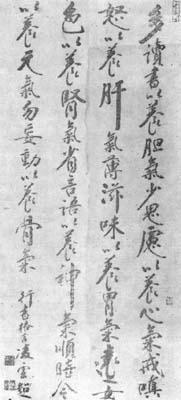 多讀書以養胆氣少思慮以養心氣戒嗔
怒以養肝氣薄滋味以養胃氣遠女
色以養腎氣省言語以養神氣順時令
以養元氣勿妄動以養骨氣 行書格言凌雲超